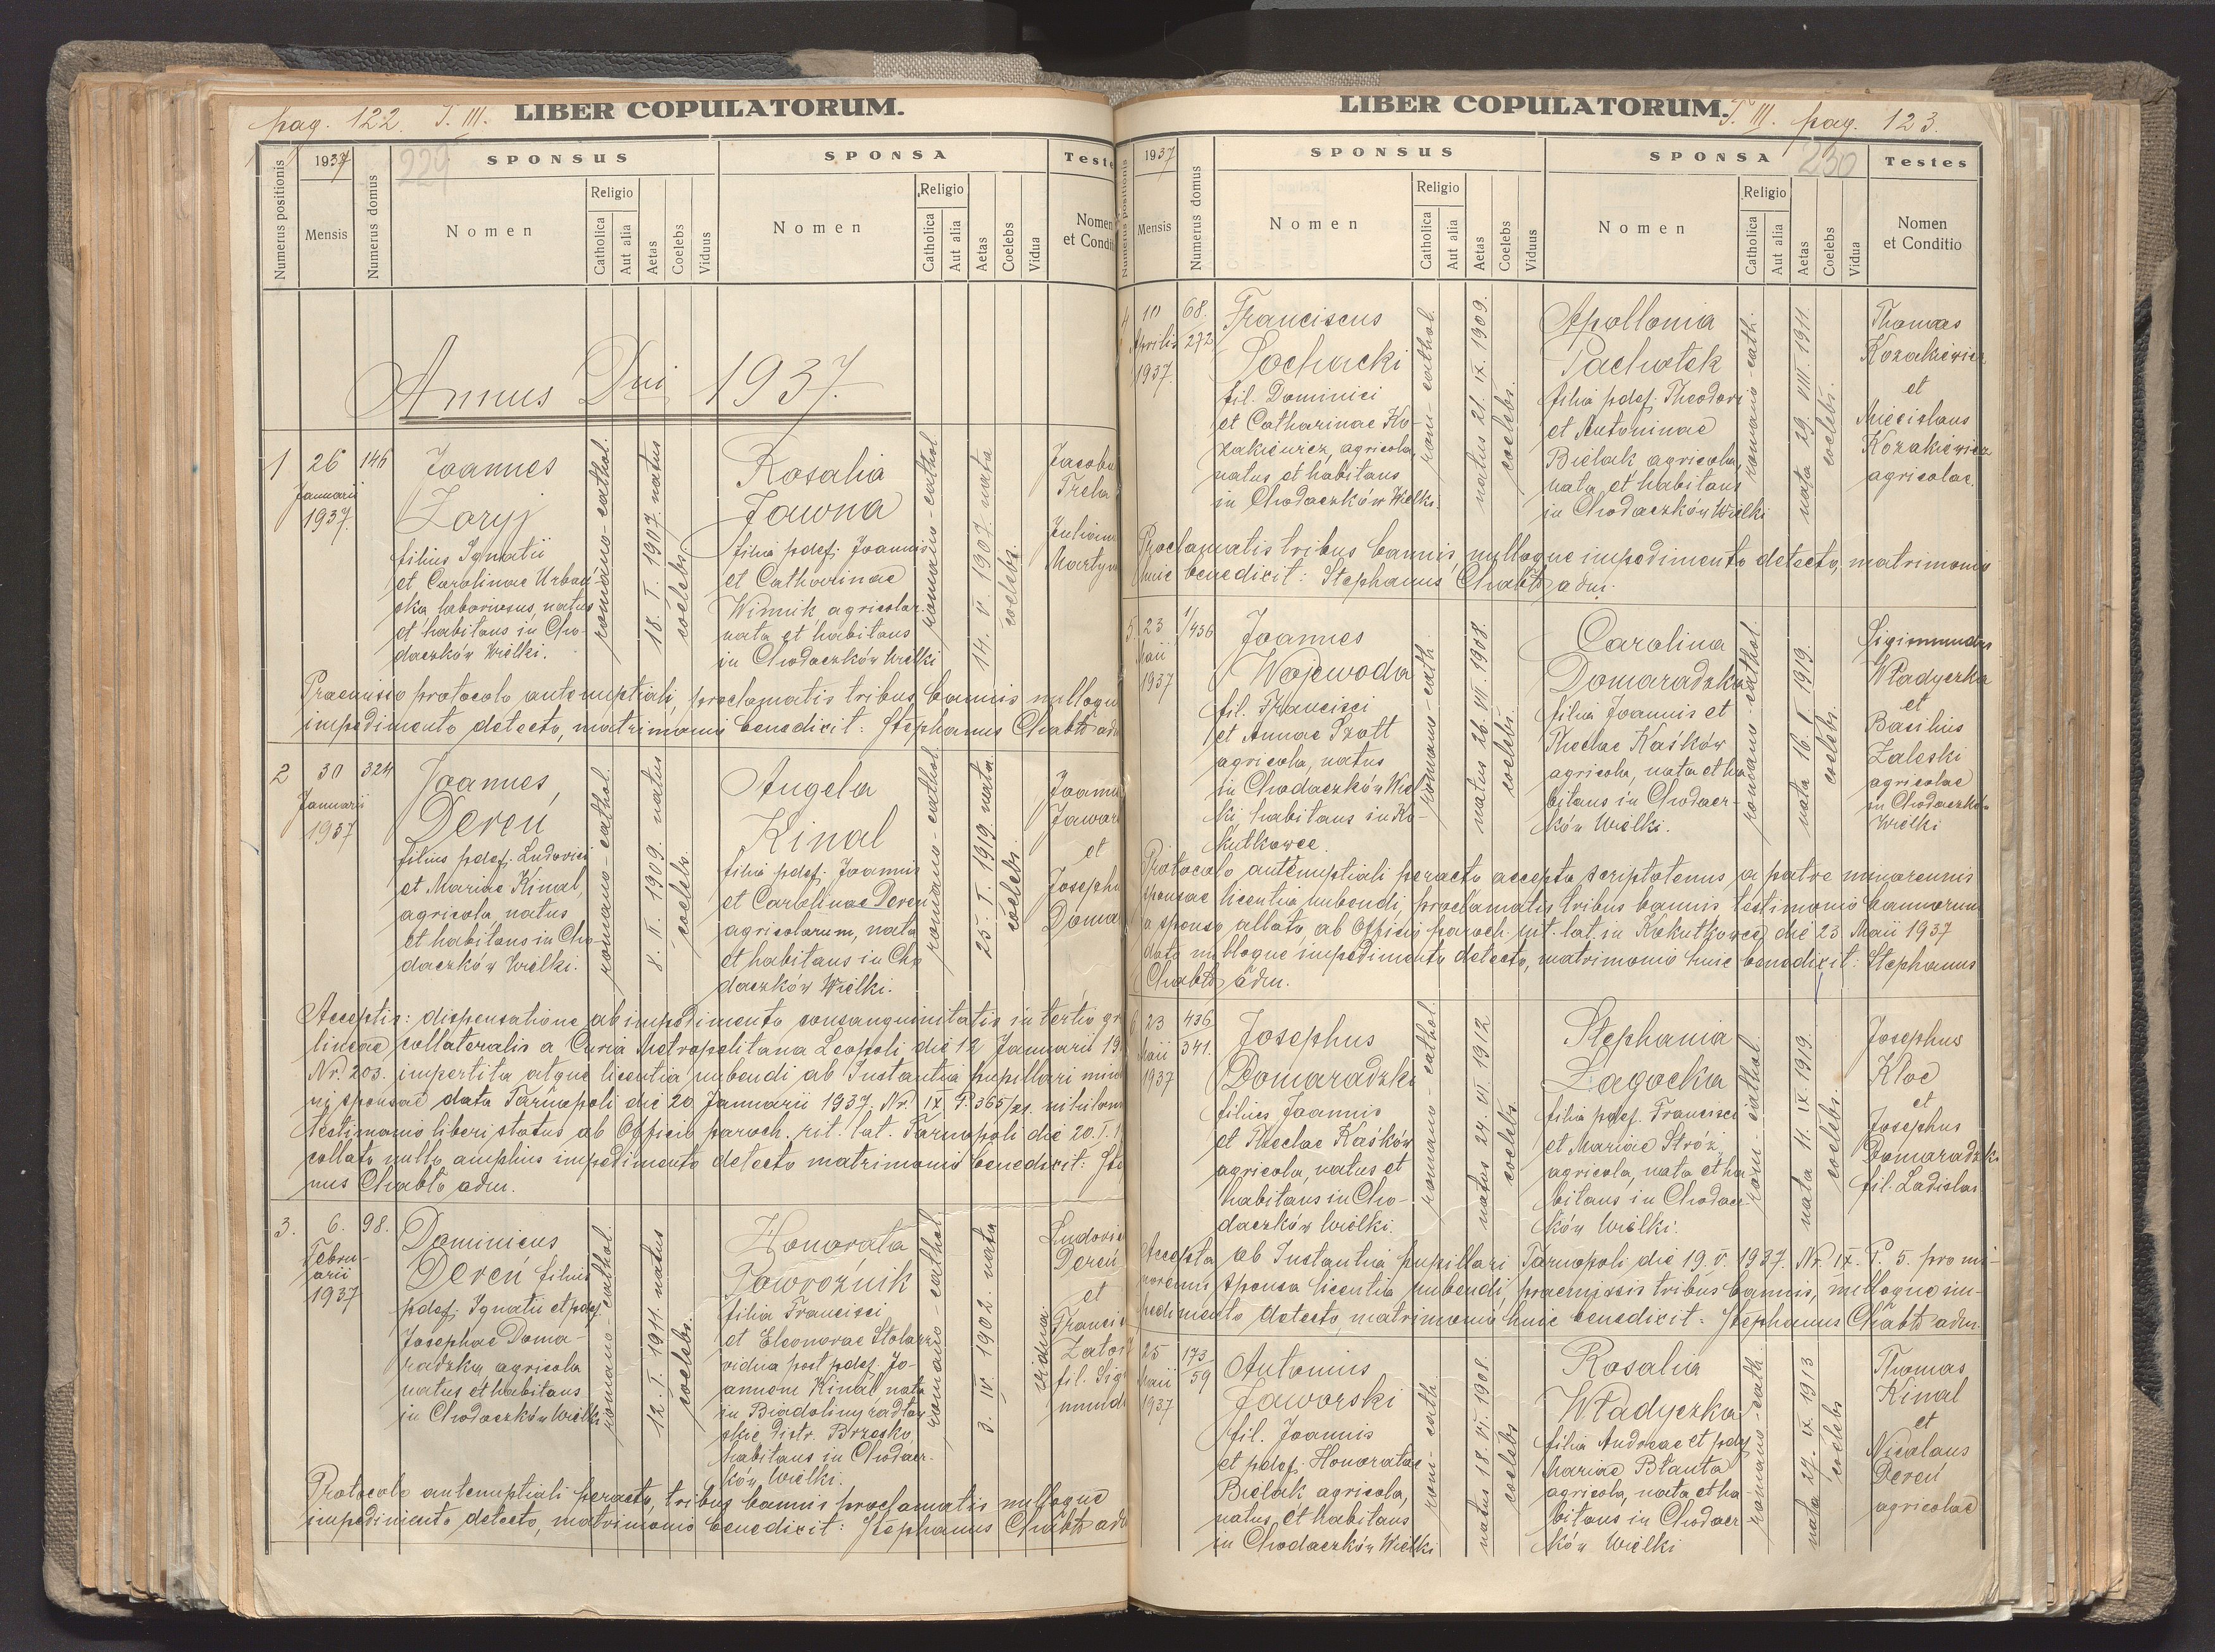 pag. 122. T. III. LIBER COPULATORUM.
Numerus positionis
1937
Mensis
Numerus domus
229
SPONSUS
Nomen
Religio
Catholica
Aut alia
Aetas
Coelebs
Viduus
SPONSA
Nomen
Religio
Catholica
Aut alia
Aetas
Coelebs
Vidua
Teste
Nomen
et Condit
Annus Dni 1937.
1
26
Januarii
1937.
146
Joannes
Zaryj
filius Ignatii
et Carolinae Urban-
ska, laboriosus, natus
et habitans in Cho-
daczków Wielki.
romano-cathol.
18. I. 1907. natus
coelebs
Rosalia
Jawna
filia pdef. Joannis
et Catharinae
Winnik agricolar.
nata et habitans
in Chodaczków Wielki
romano-cathol
14. V. 1907. nata
coelebs.
Jacobu
Treha
Julian
Martyn
Praemisso protocolo antenuptiali, proclamatis tribus bannis nulloqu
impedimento detecto, matrimonio benedixit: Stephanus Chabto adm
2
30
Januarii
1937
324
Joannes
Dereń
filius pdef. Ludovici
et Mariae Kinal,
agricola, natus
et habitans in Cho-
daczków Wielki.
romano-cathol.
8. II. 1909. natus
coelebs.
Angela
Kinal
filia pdef. Joannis
et Carolinae Dereń
agricolarum, nata
et habitans in Cho
daczków Wielki.
romano-cathol.
25. I. 1919. nata.
coelebs.
Joann
Jawor
et
Joseph
Doma
Acceptis: dispensatione ab impedimento consanguinitatis in tertio gr
lineae collateralis a Curia Metropolitana Leopoli die 12 Januarii 19
Nr. 203. impertita atque licentia nubendi ab Instantia pupillari mino
ni sponsae data Tarnopoli die 20 Januarii 1937. Nr. IX. P. 365/21.
testimonio liberi status ab Officio paroch. rit. lat. Tarnopoli die 20. I. 1
collato nullo amplius impedimento detecto matrimonio benedixit: Ste
nus Chabto adm.
3.
6.
Febru-
arii
1937
98.
Dominicus
Dereń filius
pdef. Ignatii et pdef.
Josephae Doma-
radzka, agricola
natus et habitans
in Chodaczków Wielki
romano-cathol.
12. I. 1911. natus
coelebs.
Honorata
Jaworoźnik
filia Francisci
et Eleonorae Stolarz
vidua post pdef. Jo-
annem Kinal nata
in Biadoliny radłow
skie distr. Brzesko,
habitans in Chodacz-
ków Wielki.
romano-cathol
3. IV. 1902. nata
vidua.
Ludovic
Dereń
et
Francis
Zator
fil. Sig
mund
Protocolo antenuptiali peracto, tribus bannis proclamatis nulloque
impedimento detecto, matrimonio benedixit: Stephanus Chabto adm
LIBER COPULATORUM. T. III. pag. 123.
Numerus positionis
1937
Mensis
Numerus domus
SPONSUS
Nomen
Religio
Catholica
Aut alia
Aetas
Coelebs
Viduus
SPONSA
230
Nomen
Religio
Catholica
Aut alia
Aetas
Coelebs
Vidua
Testes
Nomen
et Conditio
4
10
Aprilis
1937.
68.
272
Franciscus
Sochacki
fil. Dominici
et Catharinae Ko-
zakiewicz, agricola,
natus et habitans
in Chodaczków Wielki.
rom-cathol.
natus 21. IX. 1909.
coelebs.
Apollonia
Pachołek
filia pdef. Theodori
et Antoninae
Bielak agricola,
nata et habitans
in Chodaczków Wielki
romano-cath.
nata 29. VIII. 1911.
coelebs.
Thomas
Kozakiewicz
et
Miecislaus
Kozakiewicz
agricolae.
Proclamatis tribus bannis, nulloque impedimento detecto, matrimonio
huic benedixit: Stephanus Chabto adm.
5.
23
Maii
1937
1/436
Joannes
Wojewoda
fil. Francisci
et Annae Szott
agricola, natus
in Chodaczków Wiel
ki, habitans in Ko-
kutkowce.
romano-cath.
natus 26. VII. 1908.
coelebs.
Carolina
Domaradzka
filia Joannis et
Theclae Kaśków
agricola, nata et ha
bitans in Chodacz-
ków Wielki.
romano-cathol.
nata 16. I. 1919.
coelebs.
Sigismundus
Władyczka
et
Basilius
Zaleski
agricolae
in Chodaczków
Wielki
Protocolo antenuptiali peracto accepta scriptotenus a patre minorennis
sponsae licentia nubendi, proclamatis tribus bannis testimonio bannorum
a sponso allato ab Officio paroch. rit. lat. in Kokutkowce, die 23 Maii 1937
dato nulloque impedimento detecto, matrimonio huic benedixit: Stephanus
Chabto adm.
6
23
Maii
1937
436
341.
Josephus
Domaradzki
filius Joannis
et Theclae Kaśków
agricola, natus et
habitans in Cho-
daczków Wielki.
romano-cathol.
natus 24. VI. 1912
coelebs.
Stephania
Zagocka
filia pdef. Francisci
et Mariae Stróż,
agricola, nata et ha
bitans in Chodacz
ków Wielki.
rom. cathol.
nata 11. IX. 1919.
coelebs.
Josephus
Kloc
et
Josephus
Domaradzki
fil. Ladislai
Accepta ab Instantia pupillari Tarnopoli die 19. V. 1937. Nr. IX. P. 5. pro mi-
norennis sponsa licentia nubendi, praemissis tribus bannis, nulloque im-
pedimento detecto, matrimonio huic benedixit: Stephanus Chabto adm.
25
Maii
1937
173
59
Antonius
Jaworski
fil. Joannis
et pdef. Honoratae
Bielak agricola,
natus et habitans
in Chodaczków Wielki
rom-cath.
natus 18. VI. 1908.
coelebs
Rosalia
Władyczka
filia Andreae et pdef
Mariae Błauta
agricola, nata et ha-
bitans in Chodacz-
ków Wielki
romano-cath.
nata 27. IX. 1913
coelebs
Thomas
Kinal
et
Nicolaus
Dereń
agricolae